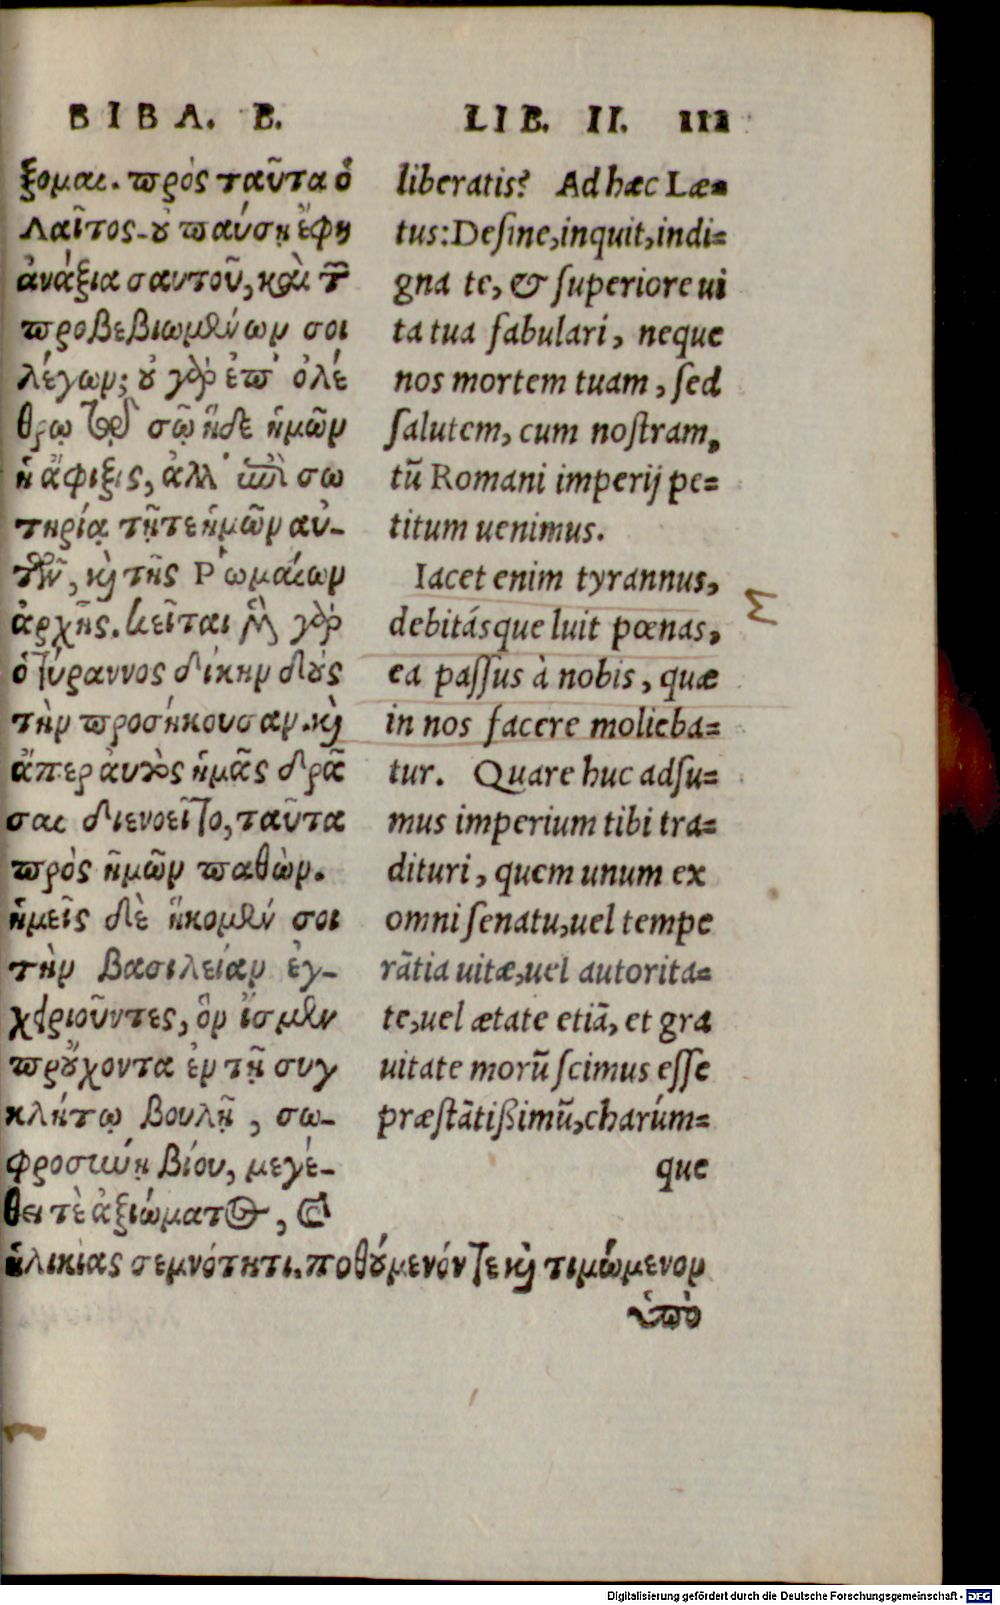 ΒΙΒΛ. Β.
ξομαι. πρὸς ταῦτα ὁ
Λαῖτος. οὐ παύσῃ ἔφη
ἀνάξια σαυτοῦ, καὶ τῶν
προβεβιωμένων σοι
λέγων; οὐ γὰρ ἐπ' ὀλέ
θρῳ τῷ σῷ ἥδε ἡμῶν
ἡ ἄφιξις, ἀλλ' ἐπὶ σω
τηρίᾳ τῇ τε ἡμῶν αὐ-
τῶν, καὶ τῆς Ῥωμαίων
ἀρχῆς. κεῖται μὲν γὰρ
ὁ τύραννος δίκην δοὺς
τὴν προσήκουσαν. καὶ
ἅπερ αὐτὸς ἡμᾶς δρᾶ
σαι διενοεῖτο, ταῦτα
πρὸς ἡμῶν παθὼν.
ἡμεῖς δὲ ἥκομεν σοι
τὴν βασιλείαν ἐγ-
χειριοῦντες, ὃν ἴσμεν
προὔχοντα ἐν τῇ συγ
κλήτῳ βουλῇ, σω-
φροσύνῃ βίου, μεγέ-
θει τὲ ἀξιώματος, καὶ
ἡλικίας σεμνότητι. ποθούμενόν τε καὶ τιμώμενον
ὑπὸ
LIB. II. 111
liberatis? Ad hæc Læ=
tus: Desine, inquit, indi=
gna te, & superiore ui
ta tua fabulari, neque
nos mortem tuam, sed
salutem, cum nostram,
tū Romani imperij pe=
titum uenimus.
Iacet enim tyrannus,
debitásque luit pœnas,
ea passus à nobis, quæ
in nos facere molieba=
tur. Quare huc adsu=
mus imperium tibi tra=
dituri, quem unum ex
omni senatu, uel tempe
rātia uitæ, uel autorita=
te, uel ætate etiā, et gra
uitate morū scimus esse
præstātißimū, charúm=
que
Digitalisierung gefördert durch die Deutsche Forschungsgemeinschaft - DFG